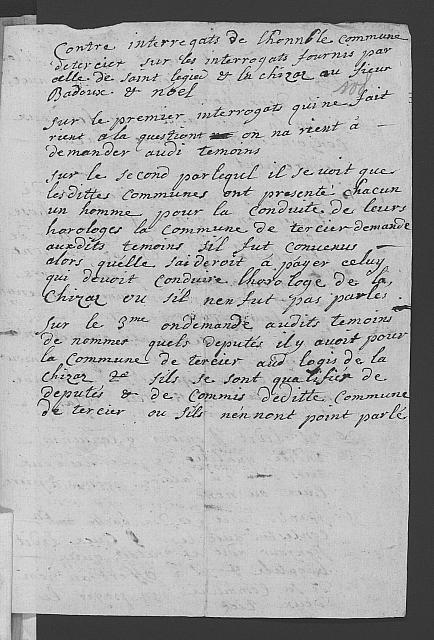 Contre interregats de lhonnble Commune
de tercier sur les interrogats fournis par
celle de saint legié et la chizaz au sieur
Badoux et noel
sur le premier interrogats qui ne fait
rient a la questiont on na rient à
demander audi temoins
sur le second par lequil il se voit que
lesdittes communes ont presenté chacun
un homme pour la conduite de leurs
horologes la commune de tercier demande
auxdits temoins sil fut convenus
alors quélle saideroit á payer celuy
qui devoit conduire lhorologe de la
Chizaz ou sil nen fut pas parles
sur le 3me ondemande audits temoins
de nommes quels deputés il y avoit pour
la Commune de tercier au logis de la
Chizaz & sils se sont qualifiér de
deputés & de Commis deditte Commune
de tercier ou sils nén nont point parlé